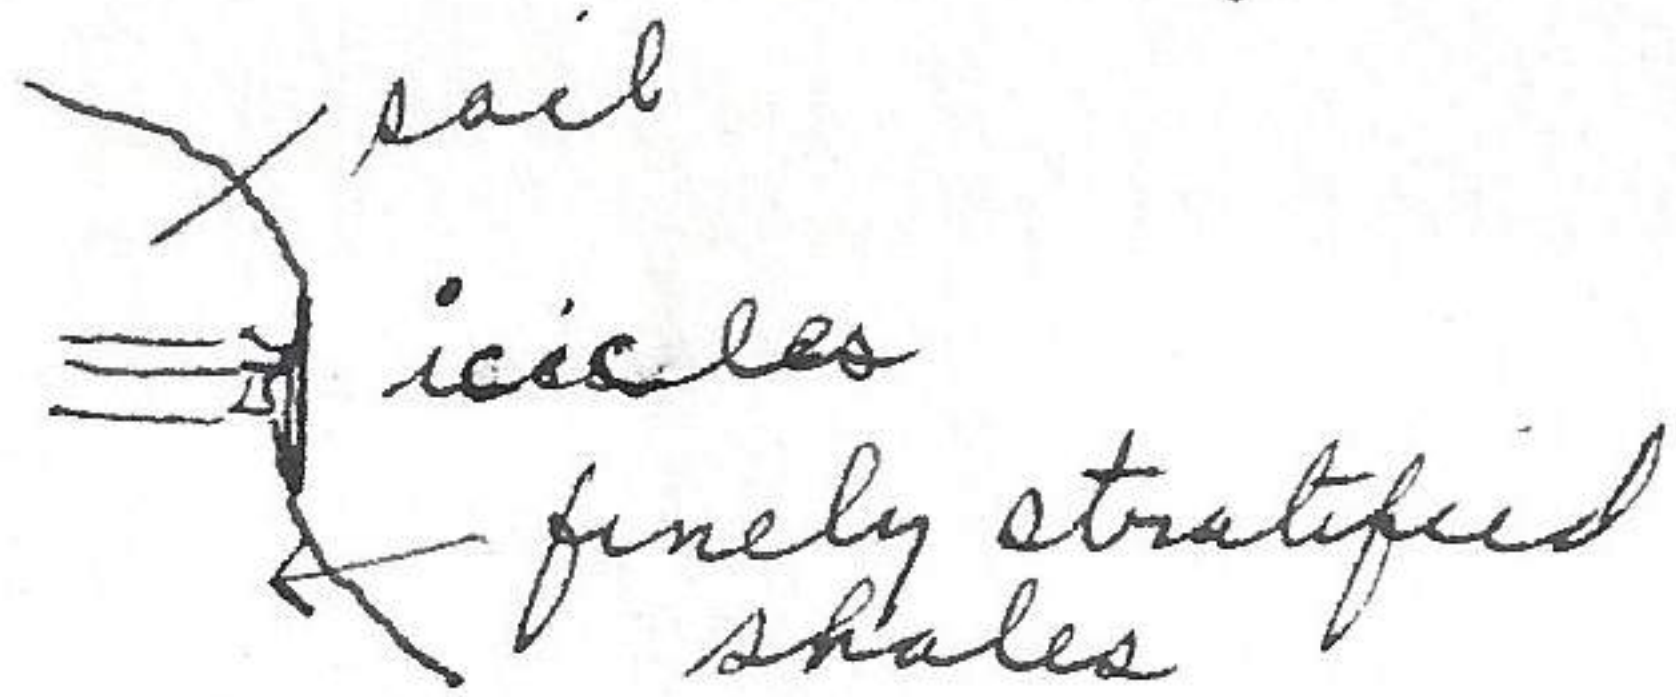 soil
icicles
finely stratified
shales